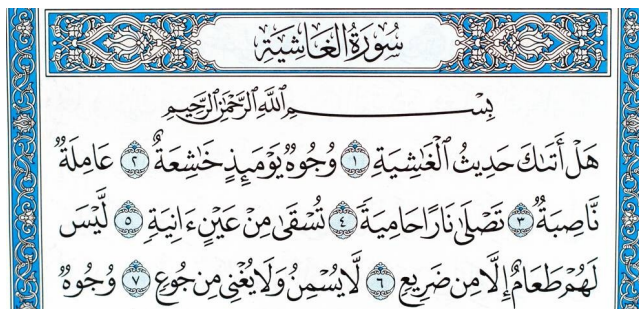 سُورَةُ الْغَاشِيَةِ
بِسْمِ اللَّهِ الرَّحْمَٰنِ الرَّحِيمِ
هَلْ أَتَىٰكَ حَدِيثُ ٱلْغَٰشِيَةِ ١ وُجُوهٌ يَوْمَئِذٍ خَٰشِعَةٌ ٢ عَامِلَةٌ
نَّاصِبَةٌ ٣ تَصْلَىٰ نَارًا حَامِيَةً ٤ تُسْقَىٰ مِنْ عَيْنٍ ءَانِيَةٍ ٥ لَّيْسَ
لَهُمْ طَعَامٌ إِلَّا مِن ضَرِيعٍ ٦ لَّا يُسْمِنُ وَلَا يُغْنِى مِن جُوعٍ ٧ وُجُوهٌ